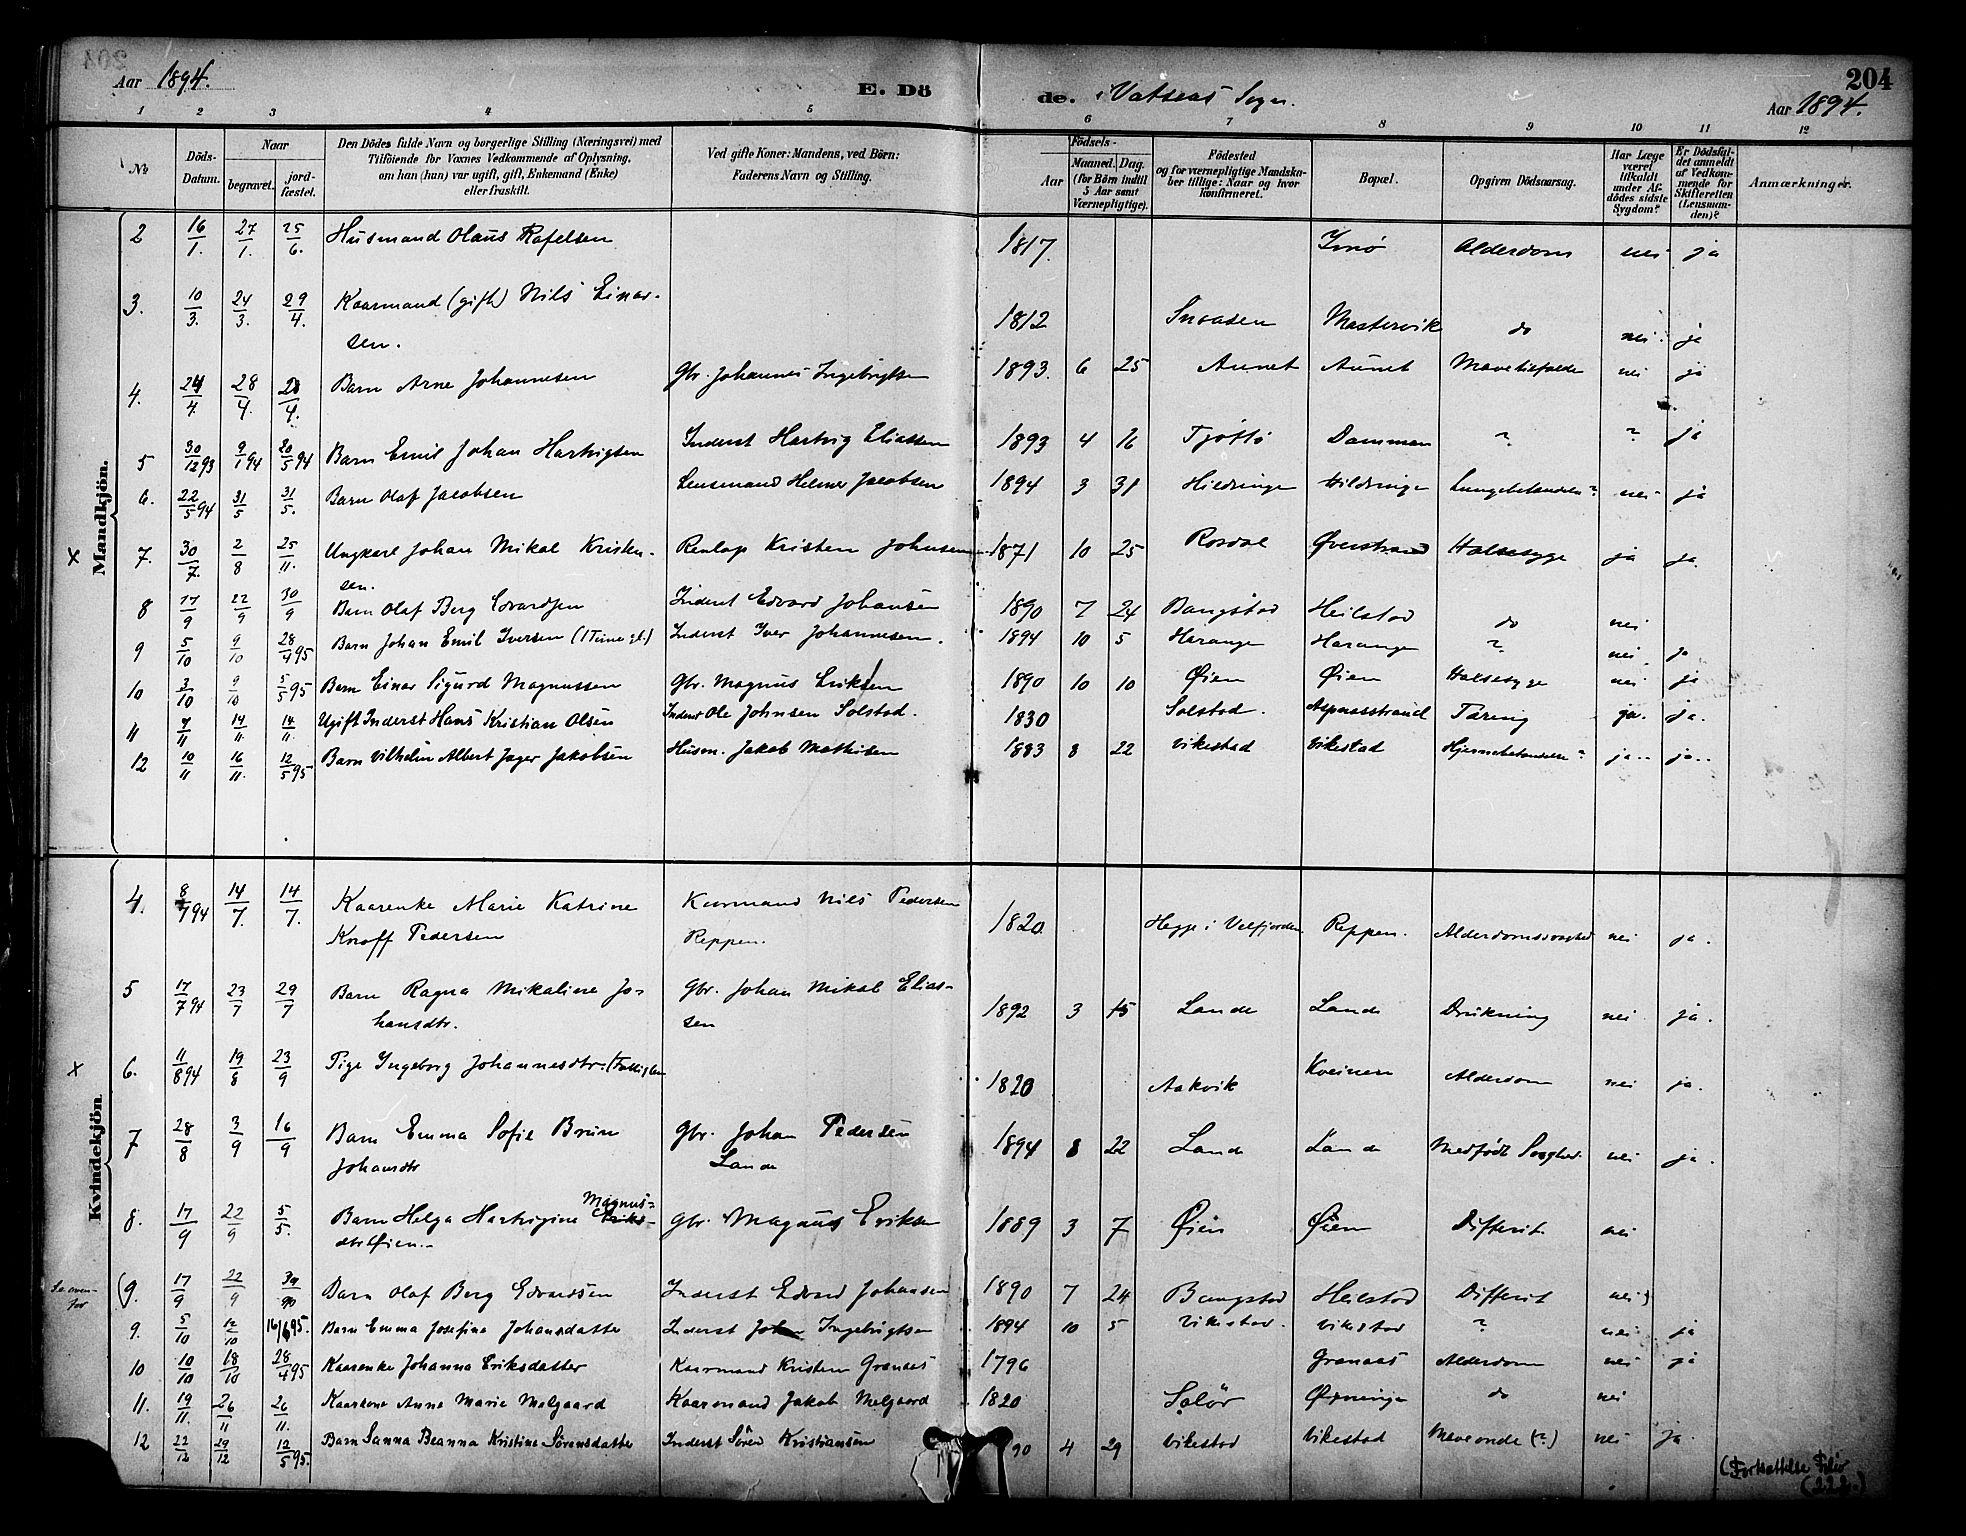 204
Aar 1894.
E. Döde. i Vatsaas Sogn.
Aar 1894.
1 2 3 4 5 6 7 8 9 10 11 12
No
Döds-Datum.
Naar
begravet.
jord-fæstet.
Den Dödes fulde Navn og borgerlige Stilling (Næringsvei) med
Tilföiende for Voxnes Vedkommende af Oplysning,
om han (han) var ugift, gift, Enkemand (Enke)
eller fraskilt.
Ved gifte Koner: Mandens, ved Börn:
Faderens Navn og Stilling.
Födsels-
Aar
Maaned. Dag.
(for Börn indtil
5 Aar samt
Værnepligtige).
Födested
og for værnepligtige Mandska-
ber tillige: Naar og hvor
konfirmeret.
Bopæl.
Opgiven Dödsaarsag.
Har Læge
været
tilkaldt
under Af-
dödes sidste
Sygdom?
Er Dödsfal-
det anmeldt
af Vedkom-
mende for
Skifteretten
(Lensman-
den)?
Anmærkninger.
Mandkjön.
2 16/1. 27/1. 25/6. Husmand Olaus Rafelsen 1817. Alderdom nei ja
3. 10/3. 24/3. 29/4. Kaarmand (gift) Nils Einar- 1812 Snaasen Mastervik do nei ja
sen.
4. 24/4. 28/4. 28/4. Barn Arne Johannesen Gbr. Johannes Ingebrigtsen 1893. 6 25 Aunet Aunet nei ja
5 30/12 93 9/1 94 20/5 94 Barn Emil Johan Hartvigsen Inderst Hartvig Eliassen 1893 4 16 Tjöttö Damman ? ? ja
6. 22/5 94 31/5 31/5. Barn Olaf Jacobsen Lensmand Helmer Jacobsen 1894 3 31 Hildringen Hildringen Lungebetændelse? nei ja
x 7. 30/7. 2/8 25/11. Ungkarl Johan Mikal Kristen- Kristen Johnsen 1871 10 25 Rosdal Øverstrand Halssyge ja ja.
sen.
8 17/9 22/9 30/9 Barn Olaf Berg Edvardsen Inderst Edvard Johansen 1890 7 24 Bangstad Heilstad do nei
9 5/10 9/10 28/4 95 Barn Johan Emil Iversen (1 Time gl.) Inderst Iver Johannesen. 1894 10 5 Harangen Harangen ? nei ja
10 3/10 9/10 5/5 95 Barn Einar Sigurd Magnussen Gbr. Magnus Eriksen 1890 10 10 Øien Øien Halssyge nei ja
11 7/11 14/11. 14/11. Ugift Inderst Hans Kristian Olsen Inderst Ole Johnsen Solstad. 1830 Solstad. Aspnesstrand Tæring ja. ja.
12 10/11 16/11. 12/5 95 Barn Vilhelm Albert Jager Jakobsen Husm. Jakob Mathisen 1883 8 22 Vikestad Vikestad Hjernebetændelse? ja.. ja..
Kvindekjön
4. 8/7 94 14/7. 14/7. Kaarenke Marie Katrine Kaarmand Nils Pedersen 1820. Hegge i Velfjorden Reppen. Alderdomssvaghed nei ja.
Knoff Pedersen Reppen.
5 17/7 94 23/7 29/7 Barn Ragna Mikaline Jo- Gbr. Johan Mikal Elias- 1892 3 15 Lande Lande Drukning nei ja.
hansdtr. sen
x 6. 11/8 94 19/8 23/9 Pige Ingeborg Johannesdtr. 1820 Aakvik Alderdom nei ja.
7 28/8 3/9 16/9 Barn Emma Sofie Brun Gbr. Johan Pedersen 1894 8 22 Lande Lande Medfödt Svaghed nei ja.
Johansdtr Lande
8. 17/9 22/9 5/5. Barn Helga Hartvigine Magnus- Gbr. Magnus Eriksen 1889 3 7 Øien Øien Difterit. nei
dtr Øien..
Se oven-
for
(9. 17/9 22/9 Barn Olaf Berg Edvardsen Inderst Edvard Johansen 1890 7 24 Bangstad Heilstad Difterit nei)
9. 5/10 12/10 16/6 95. Barn Emma Josefina Johansdatter Inderst Johan Ingebrigtsen 1894 10 5 Vikestad. Vikestad ? nei ja
10 10/10 18/10 28/4 95 Kaarenke Johanna Eriksdatter Kaarmand Kristen Granaas 1796 Granaas Alderdom nei ja
11. 19/11. 26/11 26/11. Kaarkone Anne Marie Melgaard Kaarmand Jakob Melgaard 1820 Solör do nei
12 22/12 29/12 12/5 95. Barn Sanna Beanna Kristine Sörensdatter Inderst Sören Kristiansen 90 4 29 Vikestad Vikestad Maveonde (?) nei ja.
(Fortsættelse Folio